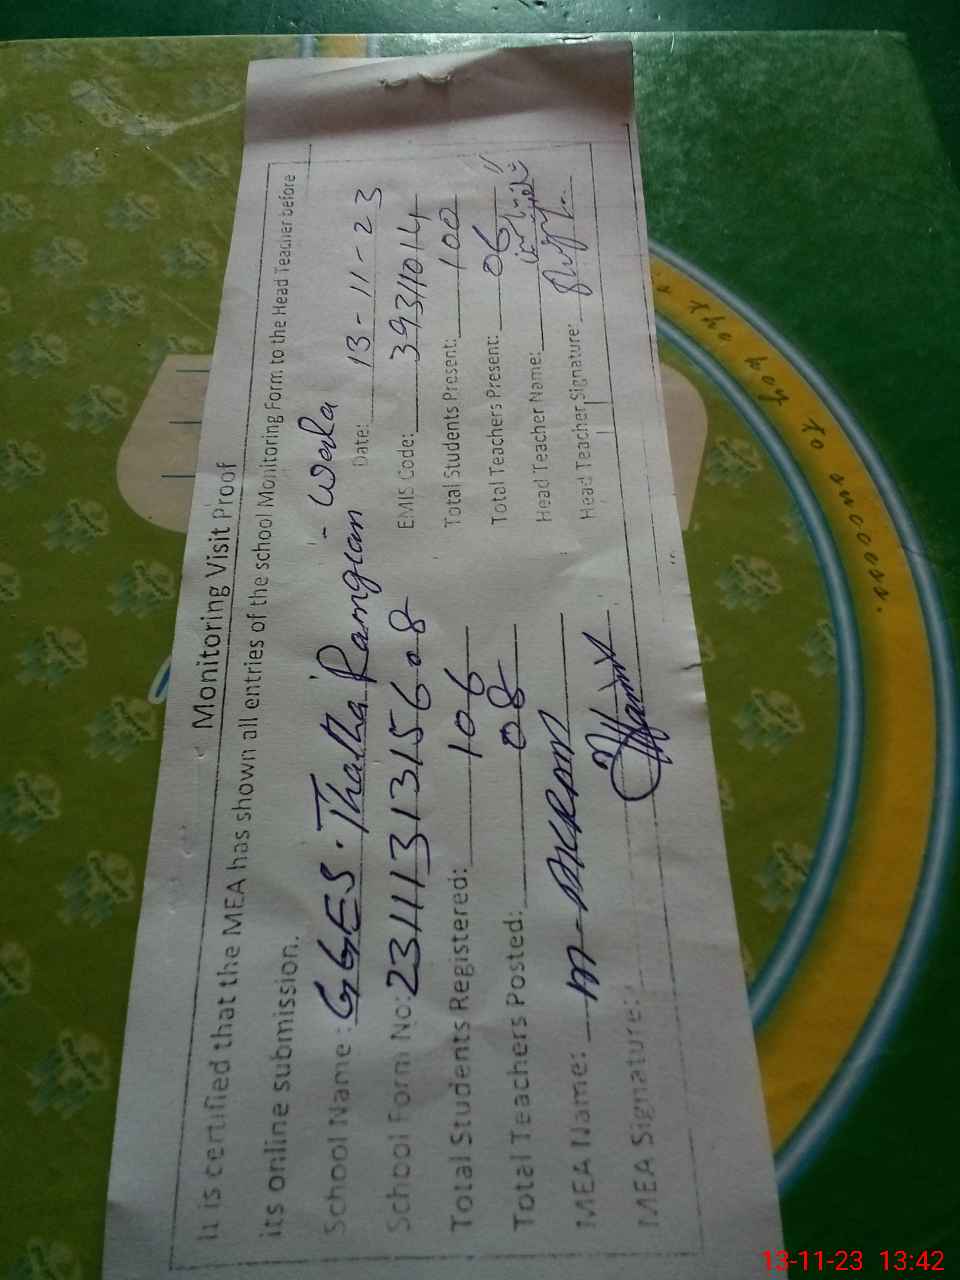 Monitoring Visit Proof
It is certified that the MEA has shown all entries of the school Monitoring Form to the Head Teacher before
its online submission.
School Name: GGES. Thatha Ramgian - Wala
Date: 13-11-23
School Form No: 2311131315608
EMIS Code: 39311014
Total Students Registered: 106
Total Students Present: 100
Total Teachers Posted: 08
Total Teachers Present: 06
MEA Name: M-AKRAM
Head Teacher Name:
MEA Signature:
Head Teacher Signature:
way to success.
13-11-23 13:42